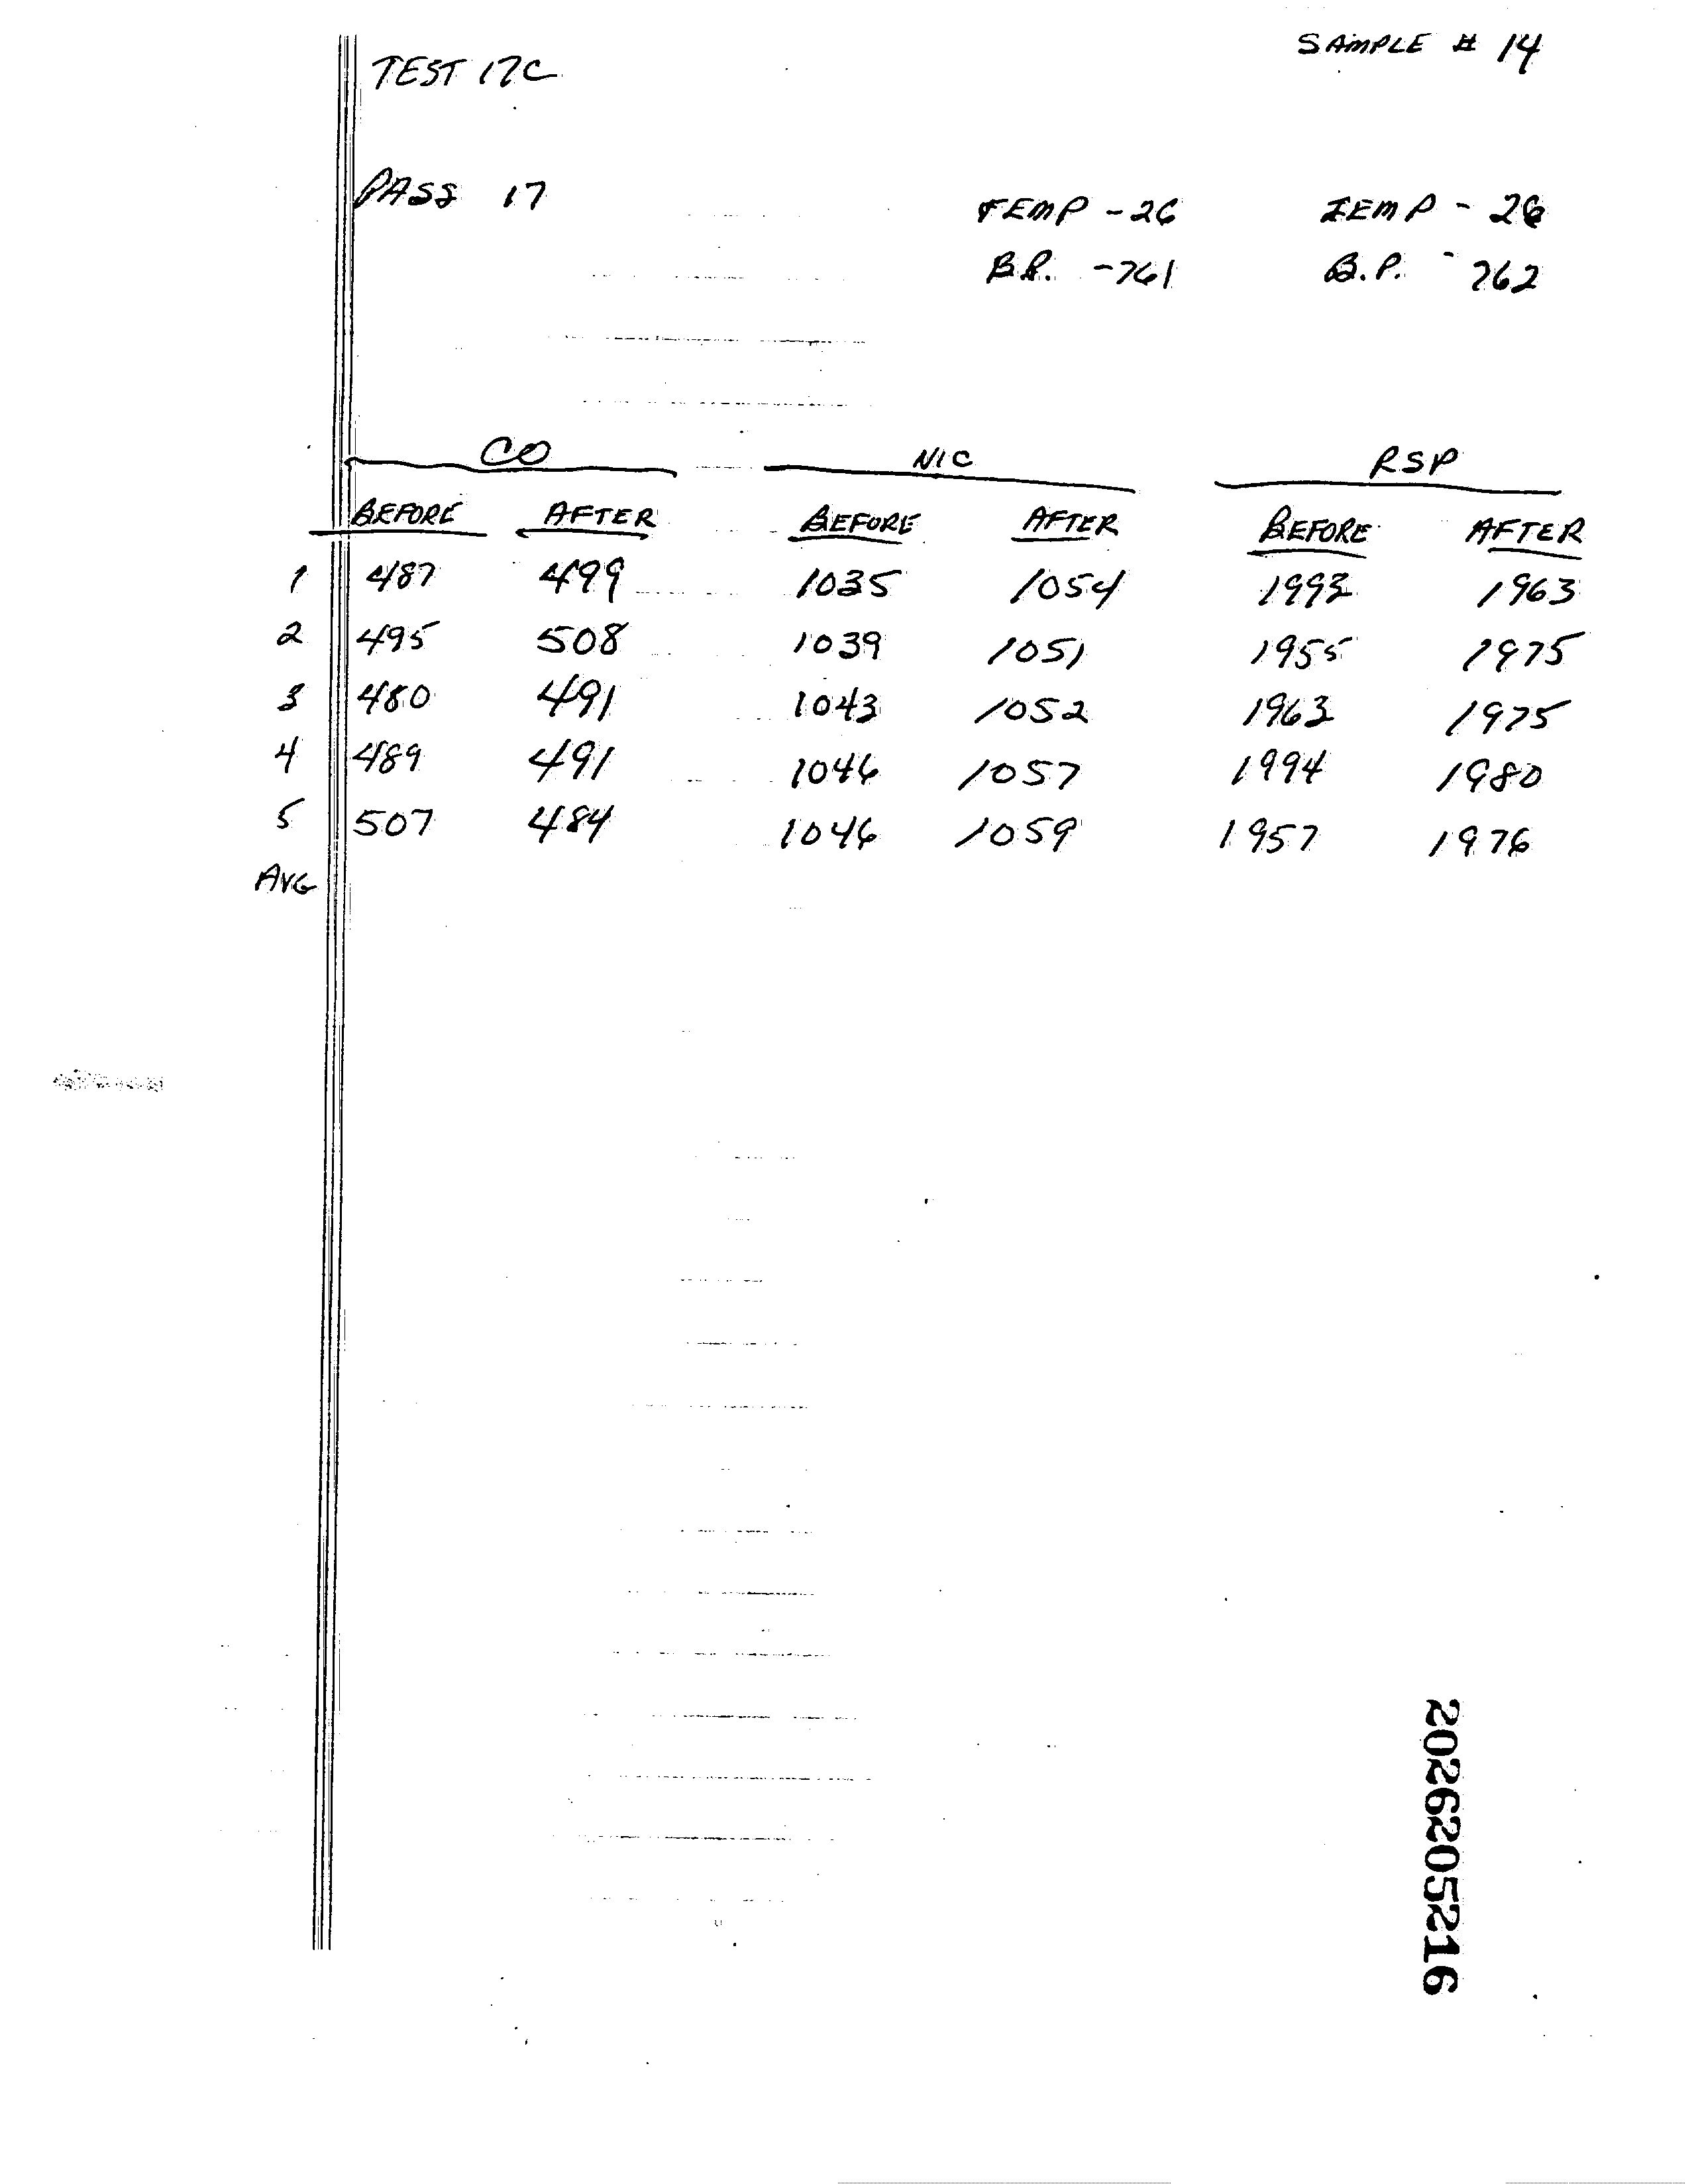 SAMPLE # 14
TEST 17C
PASS 17
TEMP - 26 TEMP - 26
B.P. - 761 B.P. - 762
CO NIC RSP
BEFORE AFTER BEFORE AFTER BEFORE AFTER
1 487 499 1035 1054 1993 1963
2 495 508 1039 1051 1955 1975
3 480 491 1043 1052 1963 1975
4 489 491 1046 1057 1994 1980
5 507 484 1046 1059 1957 1976
AVG
2026205216